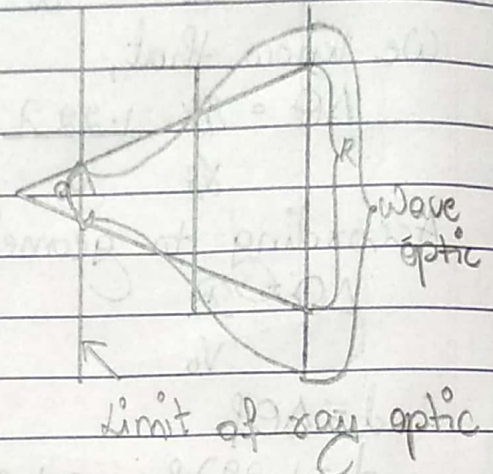 R
Wave
optic
Limit of ray optic